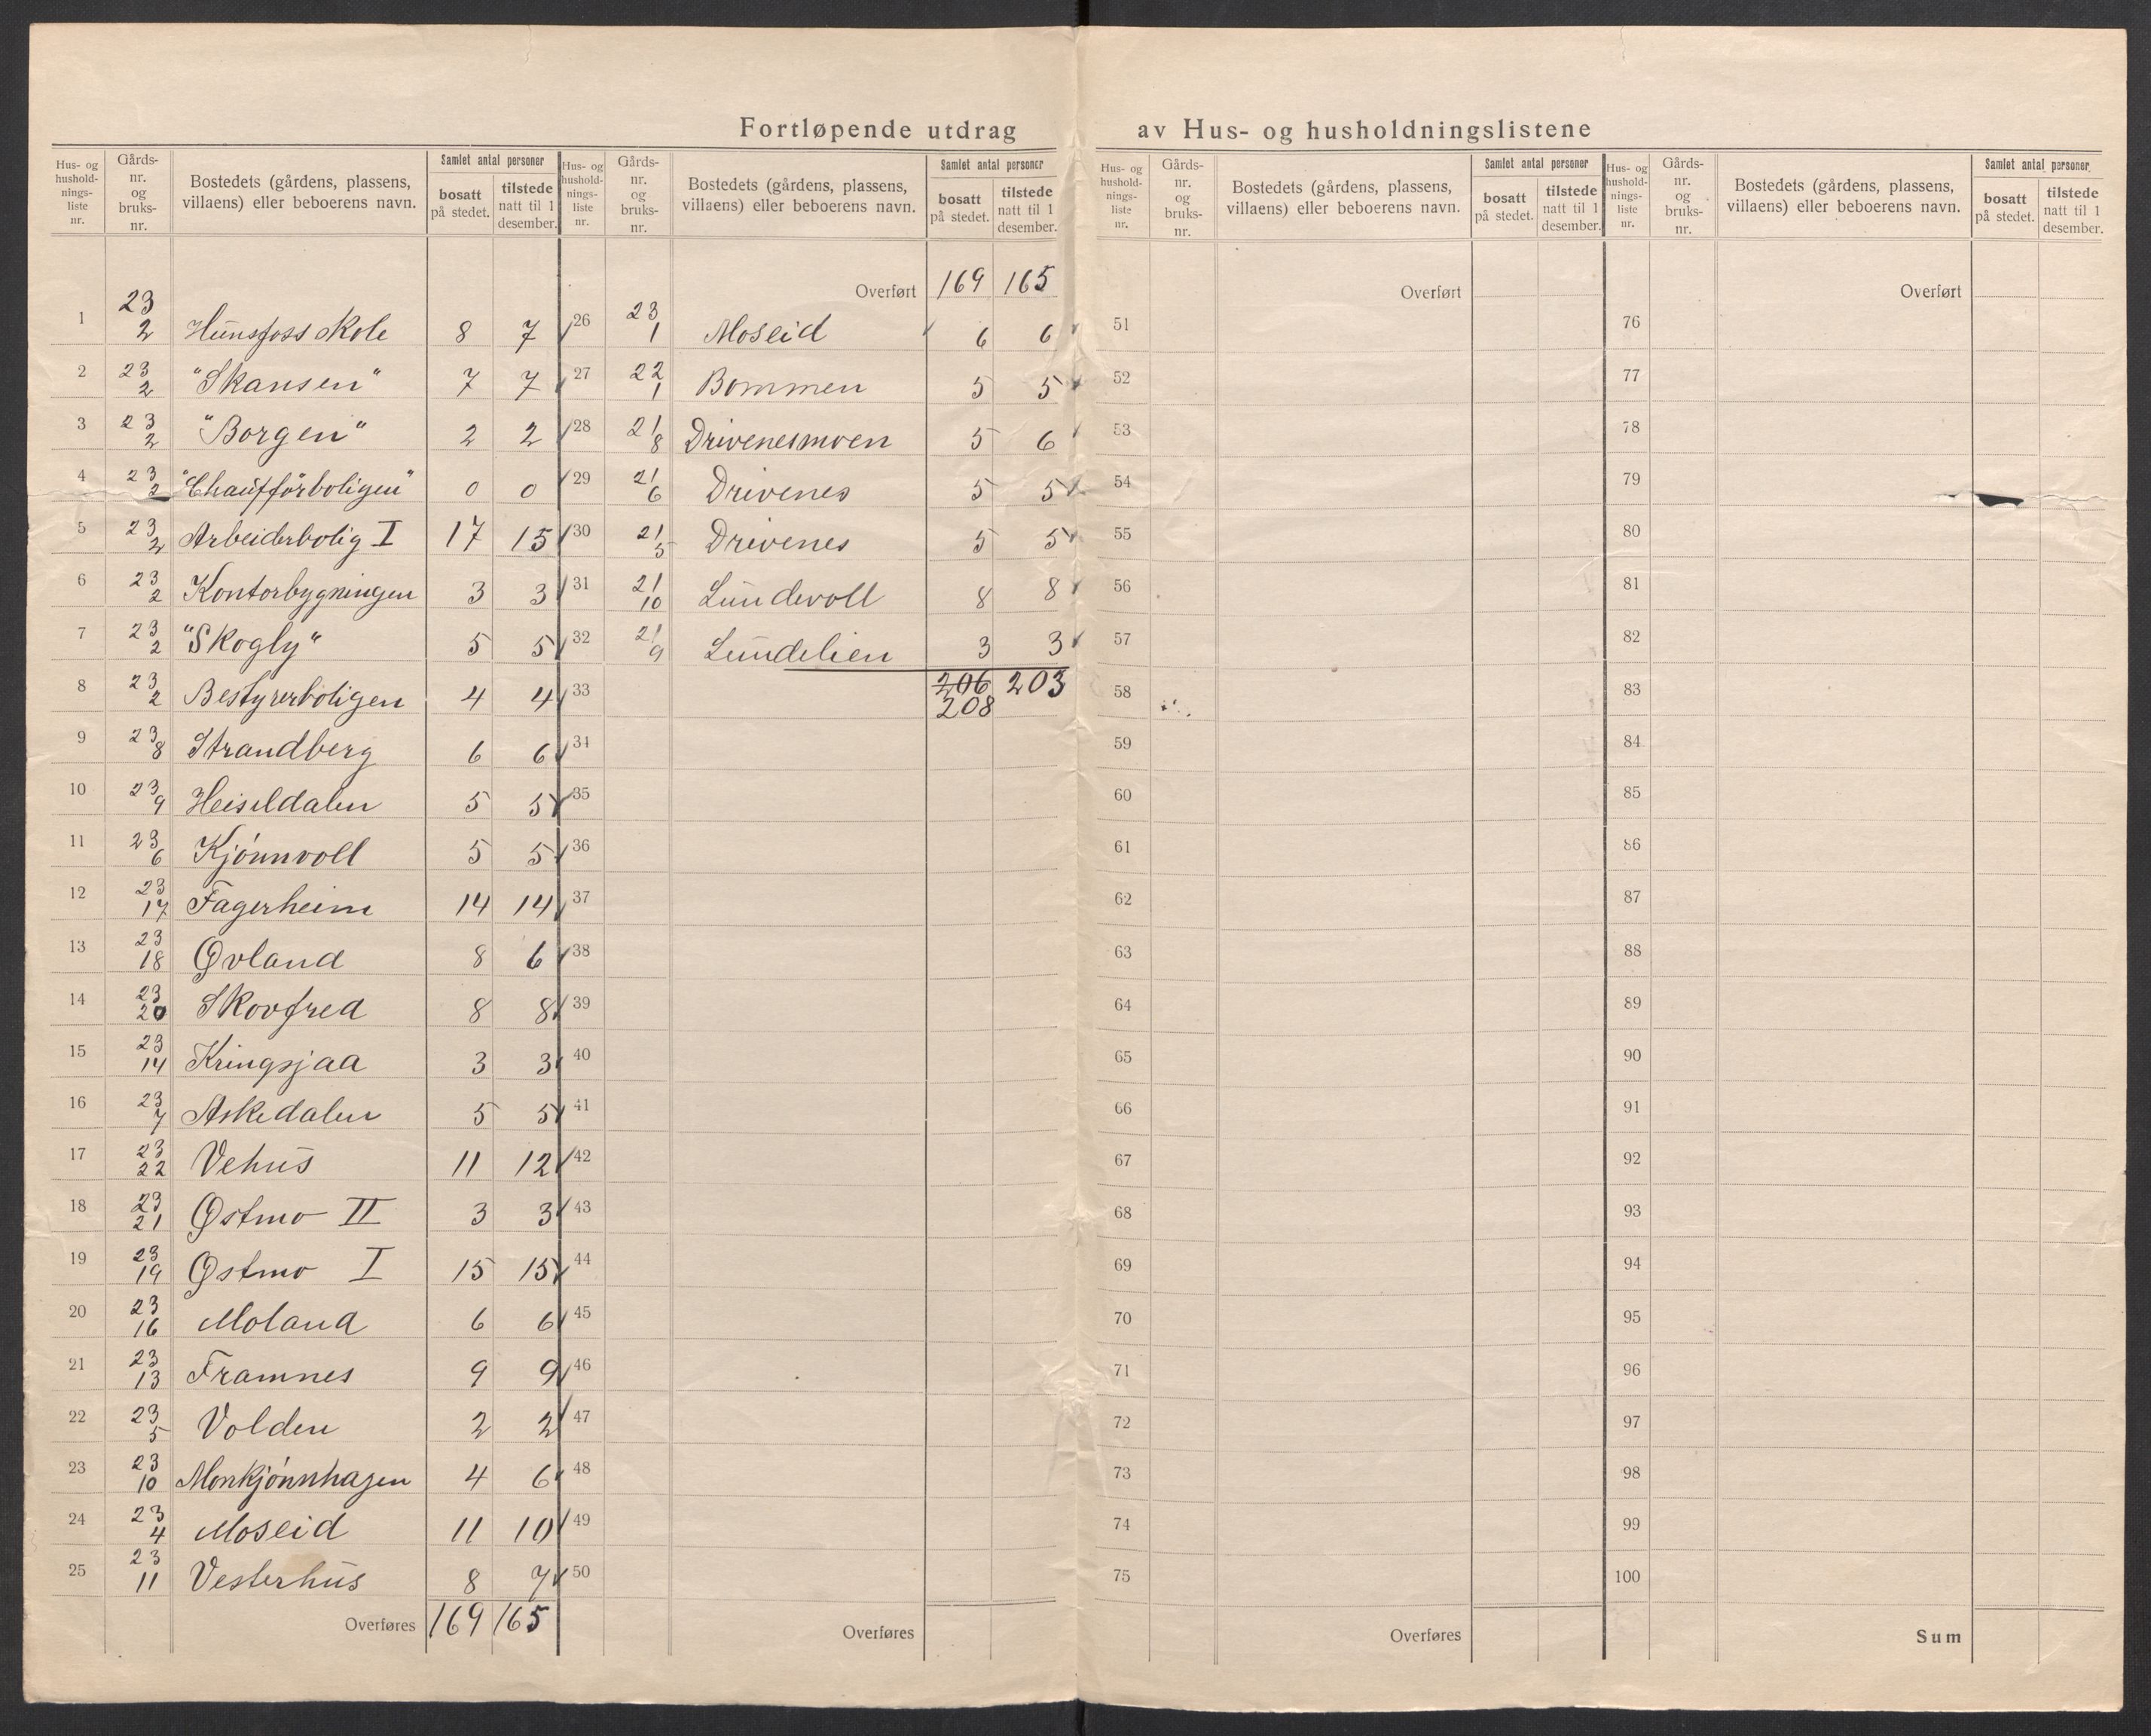 Fortløpende utdrag av Hus- og husholdningslistene
Hus- og husholdnings-liste nr. Gårds-nr. og bruks-nr. Bostedets (gårdens, plassens, villaens) eller beboerens navn. Samlet antal personer bosatt på stedet. tilstede natt til 1 desember.
1 23 2 Hunsfoss skole 8 7
2 23 2 "Skansen" 7 7
3 23 2 "Borgen" 2 2
4 23 2 "Chaufførboligen" 0 0
5 23 2 Arbeiderbolig I 17 15
6 23 2 Kontorbygningen 3 3
7 23 2 "Skogly" 5 5
8 23 2 Bestyrerboligen 4 4
9 23 8 Strandberg 6 6
10 23 9 Heiseldalen 5 5
11 23 6 Kjónnvoll 5 5
12 23 17 Fagerheim 14 14
13 23 18 Øvland 8 6
14 23 20 Skovfred 8 8
15 23 14 Kringsjaa 3 3
16 23 7 Askedalen 5 5
17 23 22 Vehus 11 12
18 23 21 Østmo II 3 3
19 23 19 Østmo I 15 15
20 23 16 Moland 6 6
21 23 13 Framnes 9 9
22 23 5 Volden 2 2
23 23 10 Monkjónnhagen 4 6
24 23 4 Moseid 11 10
25 23 11 Vesterhus 8 7
Overføres 169 165
Hus- og husholdnings-liste nr. Gårds-nr. og bruks-nr. Bostedets (gårdens, plassens, villaens) eller beboerens navn. Samlet antal personer bosatt på stedet. tilstede natt til 1 desember.
Overført 169 165
26 23 1 Moseid 6 6
27 22 1 Bommen 5 5
28 21 8 Drivenesmoen 5 6
29 21 6 Drivenes 5 5
30 21 5 Drivenes 5 5
31 21 10 Lundevoll 8 8
32 21 9 Lundelien 3 3
33 206 203
208
34
35
36
37
38
39
40
41
42
43
44
45
46
47
48
49
50
Overføres
Hus- og husholdnings-liste nr. Gårds-nr. og bruks-nr. Bostedets (gårdens, plassens, villaens) eller beboerens navn. Samlet antal personer bosatt på stedet. tilstede natt til 1 desember.
Overført
51
52
53
54
55
56
57
58
59
60
61
62
63
64
65
66
67
68
69
70
71
72
73
74
75
Overføres
Hus- og husholdnings-liste nr. Gårds-nr. og bruks-nr. Bostedets (gårdens, plassens, villaens) eller beboerens navn. Samlet antal personer bosatt på stedet. tilstede natt til 1 desember.
Overført
76
77
78
79
80
81
82
83
84
85
86
87
88
89
90
91
92
93
94
95
96
97
98
99
100
Sum